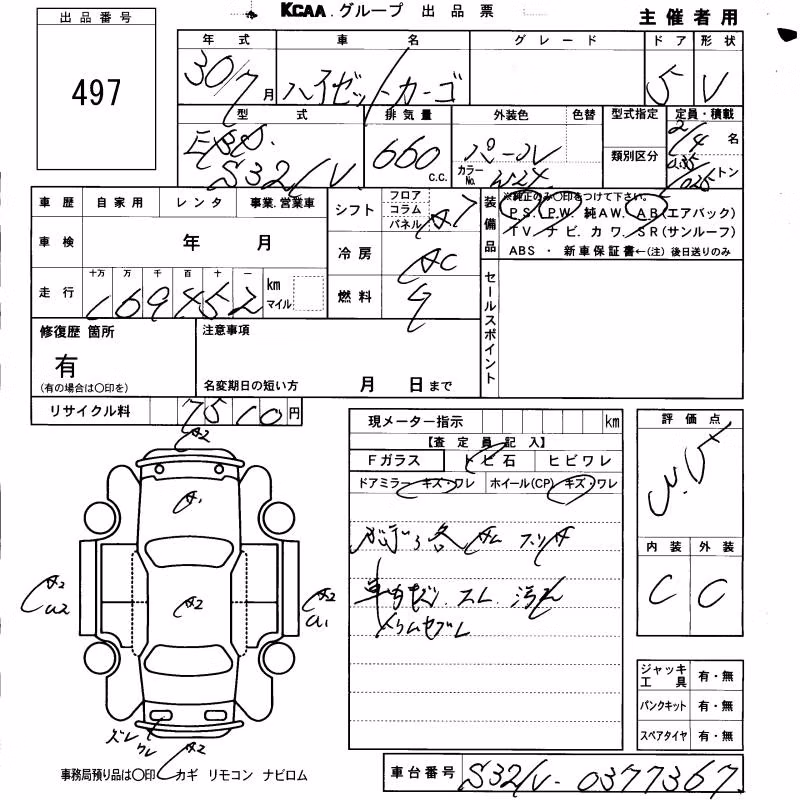 KCAA.グループ 出品票
主催者用
出品番号
497
年式 車名 グレード ドア 形状
30/7月 ハイゼットカーゴ 5 V
型式 排気量 外装色 色替 型式指定 定員・積載
EBD- S321V 660 C.C. パール カラーNo. W24 類別区分 2/4名
トン
車歴 自家用 レンタ 事業.営業車
車検 年 月
走行 十万 万 千 百 十 一
169452 km マイル
シフト フロア コラム パネル AT
冷房 AC
燃料
装備品
※純正のみ〇印をつけて下さい。
PS. P.W. 純AW. AB(エアバック)
TV. ナビ. カワ. SR(サンルーフ)
ABS ・ 新車保証書←(注) 後日送りのみ
セールスポイント
修復歴 箇所
有
(有の場合は〇印を)
注意事項
名変期日の短い方 月 日まで
リサイクル料 7510円
現メーター指示 km
【査定員記入】
Fガラス トビ石 ヒビワレ
ドアミラー キズ・ワレ ホイール(CP) キズ・ワレ
車内 スレ 汚れ
評価点
内装 外装
C C
A2
A1
A2
A2
U2
A2
U1
A2
ズレ
ジャッキ工具 有・無
パンクキット 有・無
スペアタイヤ 有・無
事務局預り品は〇印 カギ リモコン ナビロム
車台番号 S321V-0377367